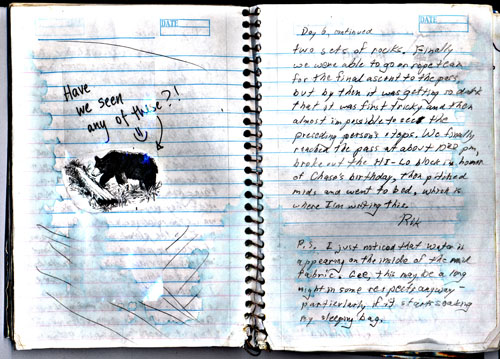 DATE
Have
we seen
any of these?!
DATE
Day 6, continued
two sets of rocks. Finally
we were able to go on rope team
for the final ascent to the pass,
but by then it was getting so dark
that it was first tricky and then
almost impossible to see the
preceding person's steps. We finally
reached the pass at about pm,
broke out the HI-LO block in honor
of Chase's birthday, then pitched
mids and went to bed, which is
where I'm writing this.
P.S. I just noticed that water is
appearing on the inside of the mid
fabric. Gee, this may be a long
night in some respects anyway -
particularly if it starts soaking
my sleeping bag.